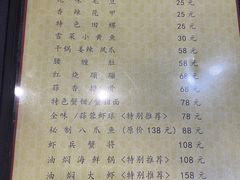 毛豆 25元
香辣花甲 25元
特色田螺 25元
雪菜小黄鱼 30元
干锅姜辣凤爪 58元
腰缠肚 60元
红烧硕磆 68元
蒜香排骨 68元
特色蟹糊/蟹 面 78元
全味/蒜蓉虾球<特别推荐> 78元
秘制八爪鱼(原价138元) 88元
虾兵蟹将 108元
油焖海鲜锅<特别推荐> 158元
油焖大虾<特别推荐> 158元